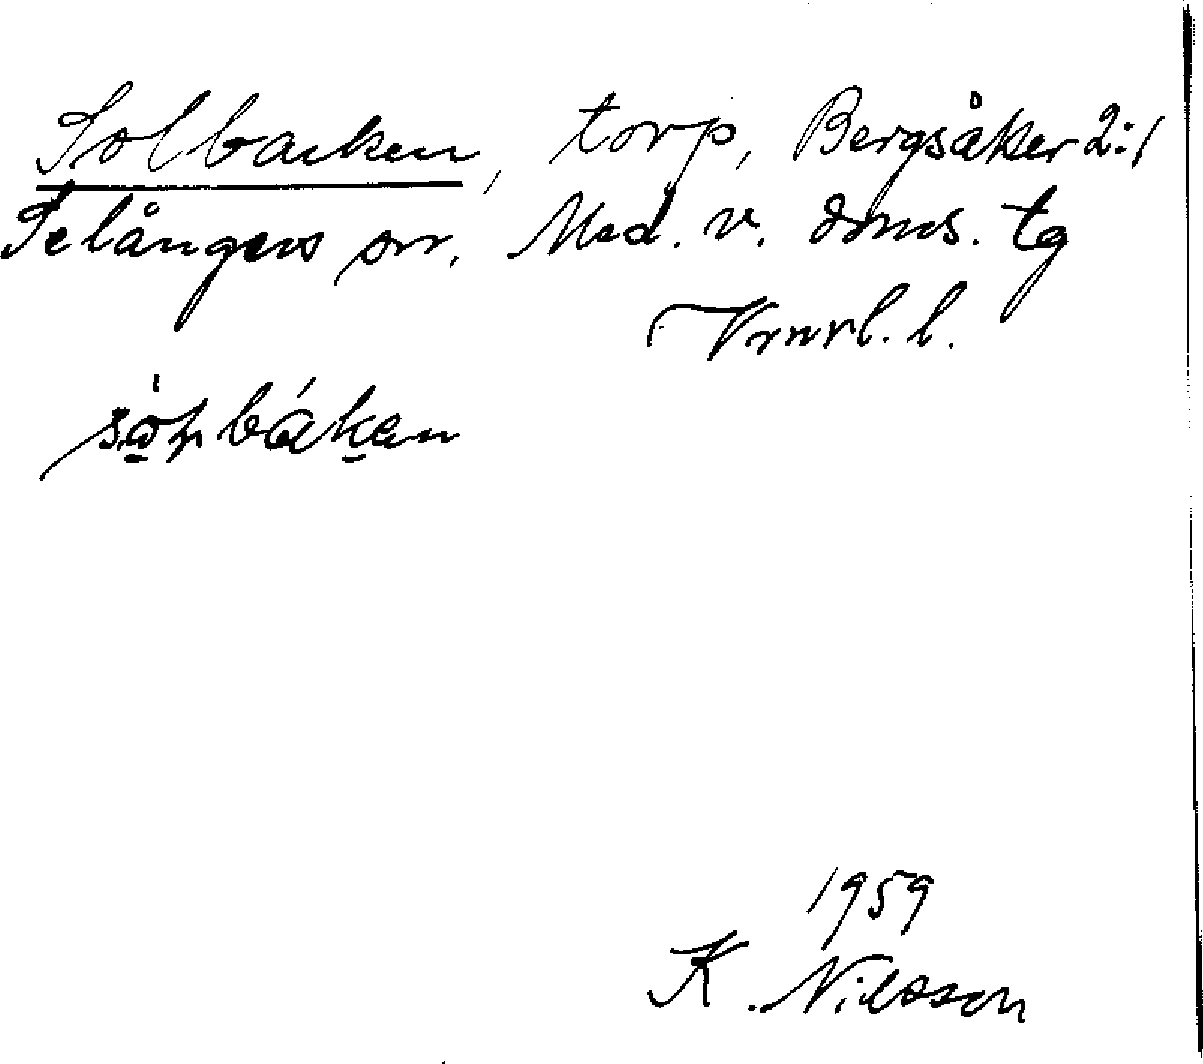 Solbacken, torp, Bergsåker 2:1
Selångers sn. Med. v. doms. tg
Vrnrl. l.
1959
K. Nilsson